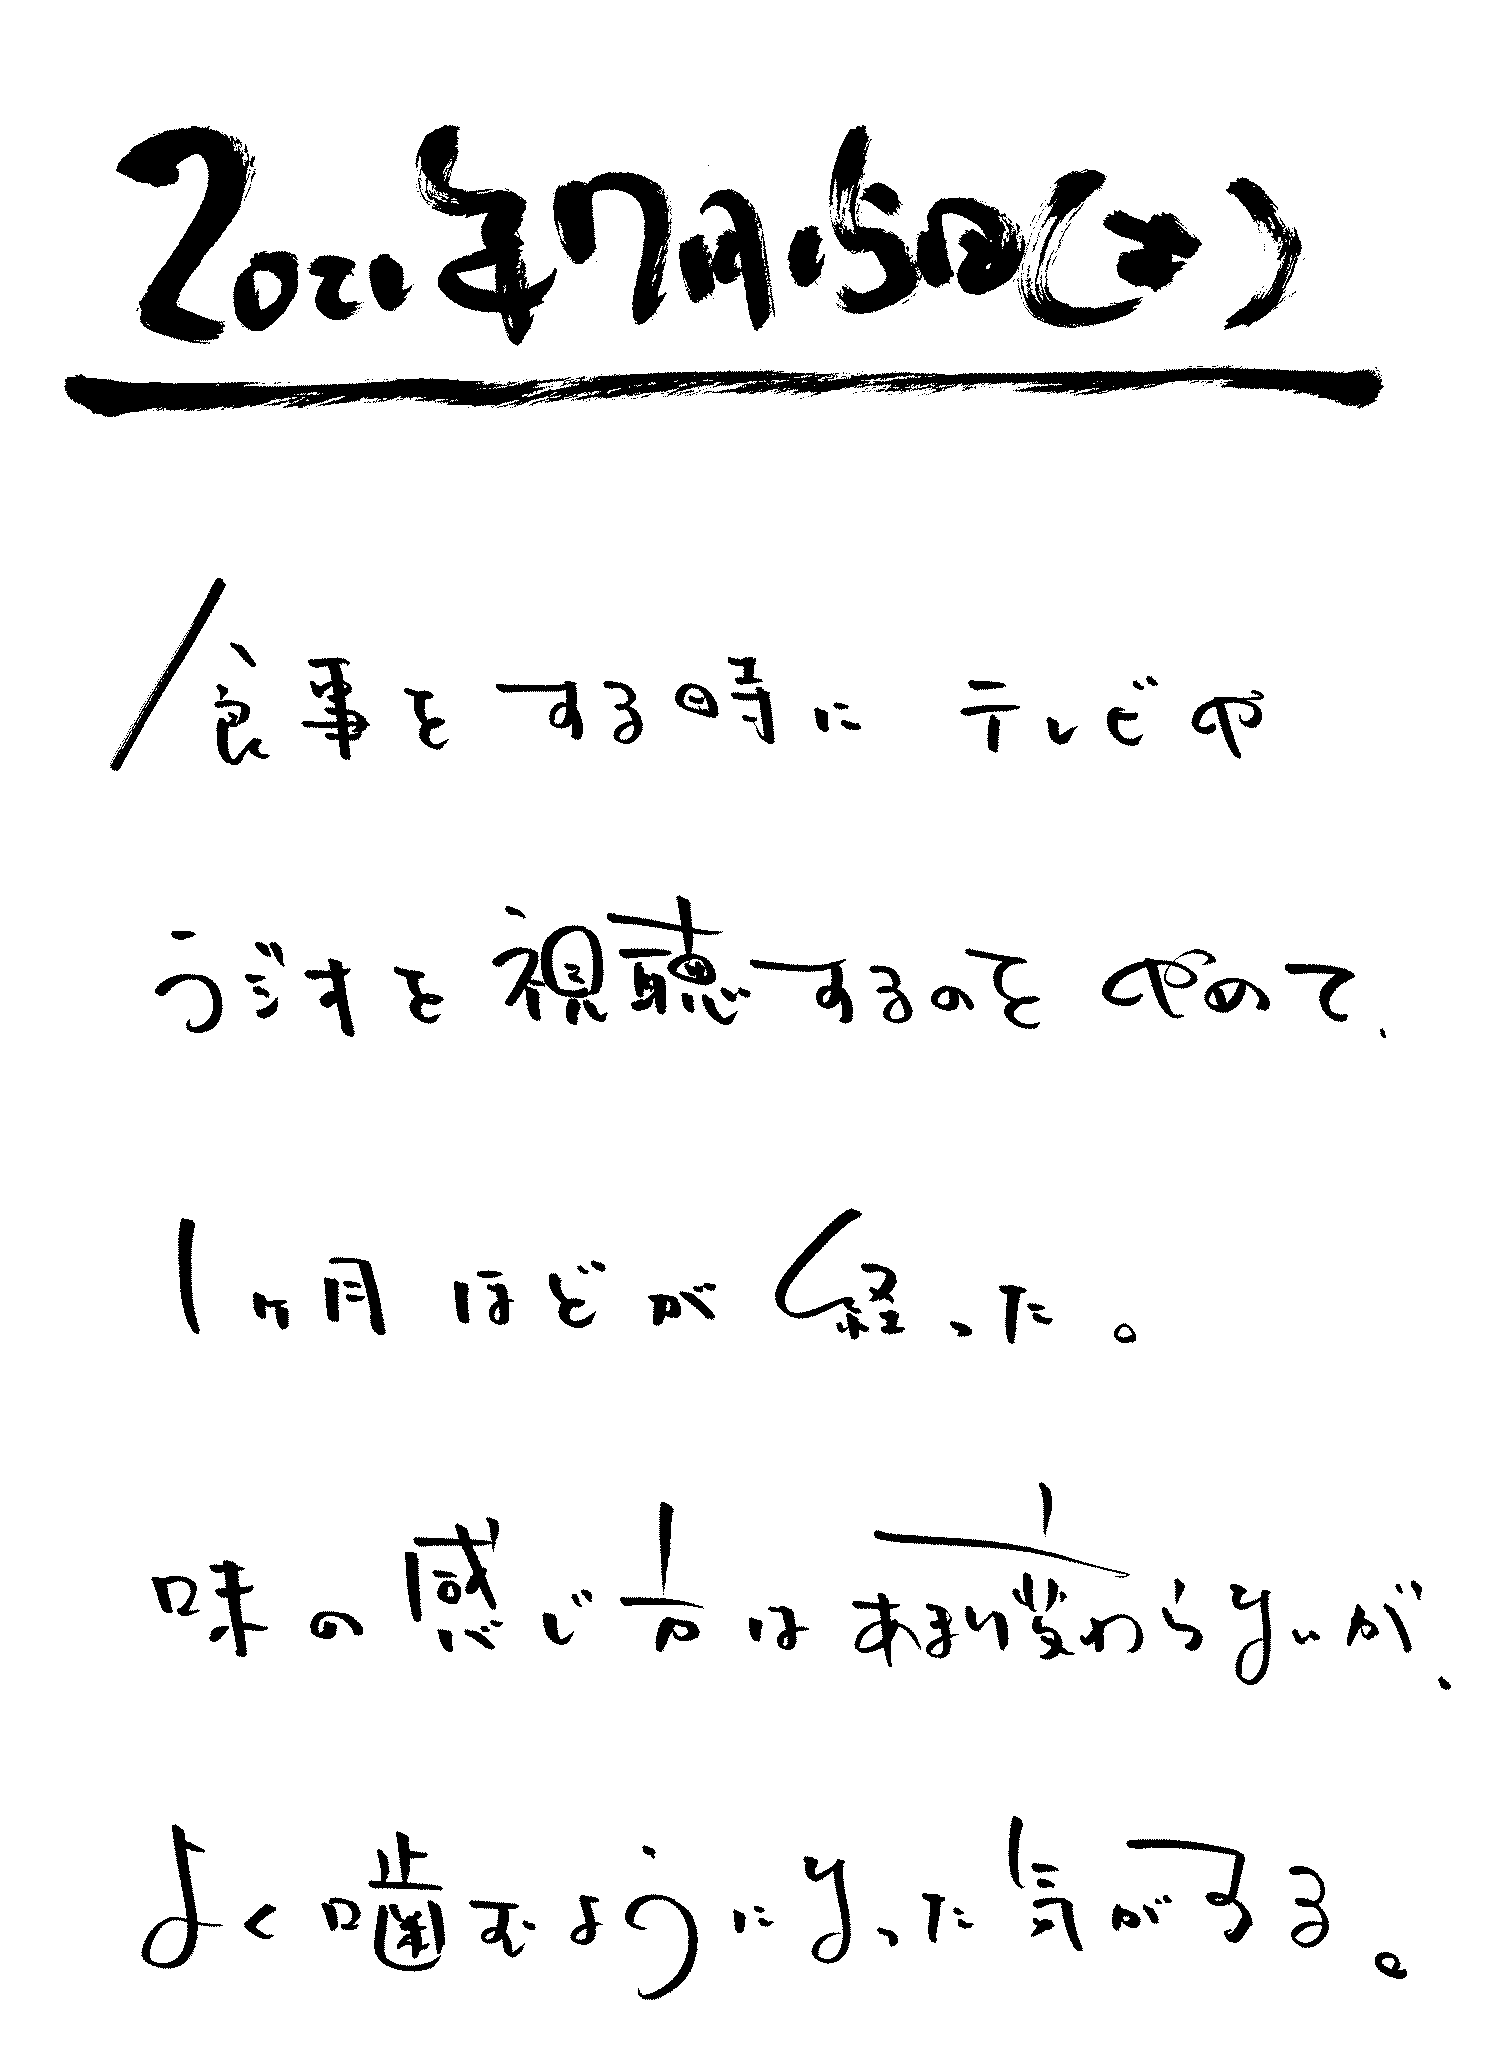 2021年7月15日(木)
食事をする時に テレビや
ラジオを視聴するのを やめて、
1ヶ月ほどが経った。
味の感じ方はあまり変わらないが、
よく噛むようになった気がする。